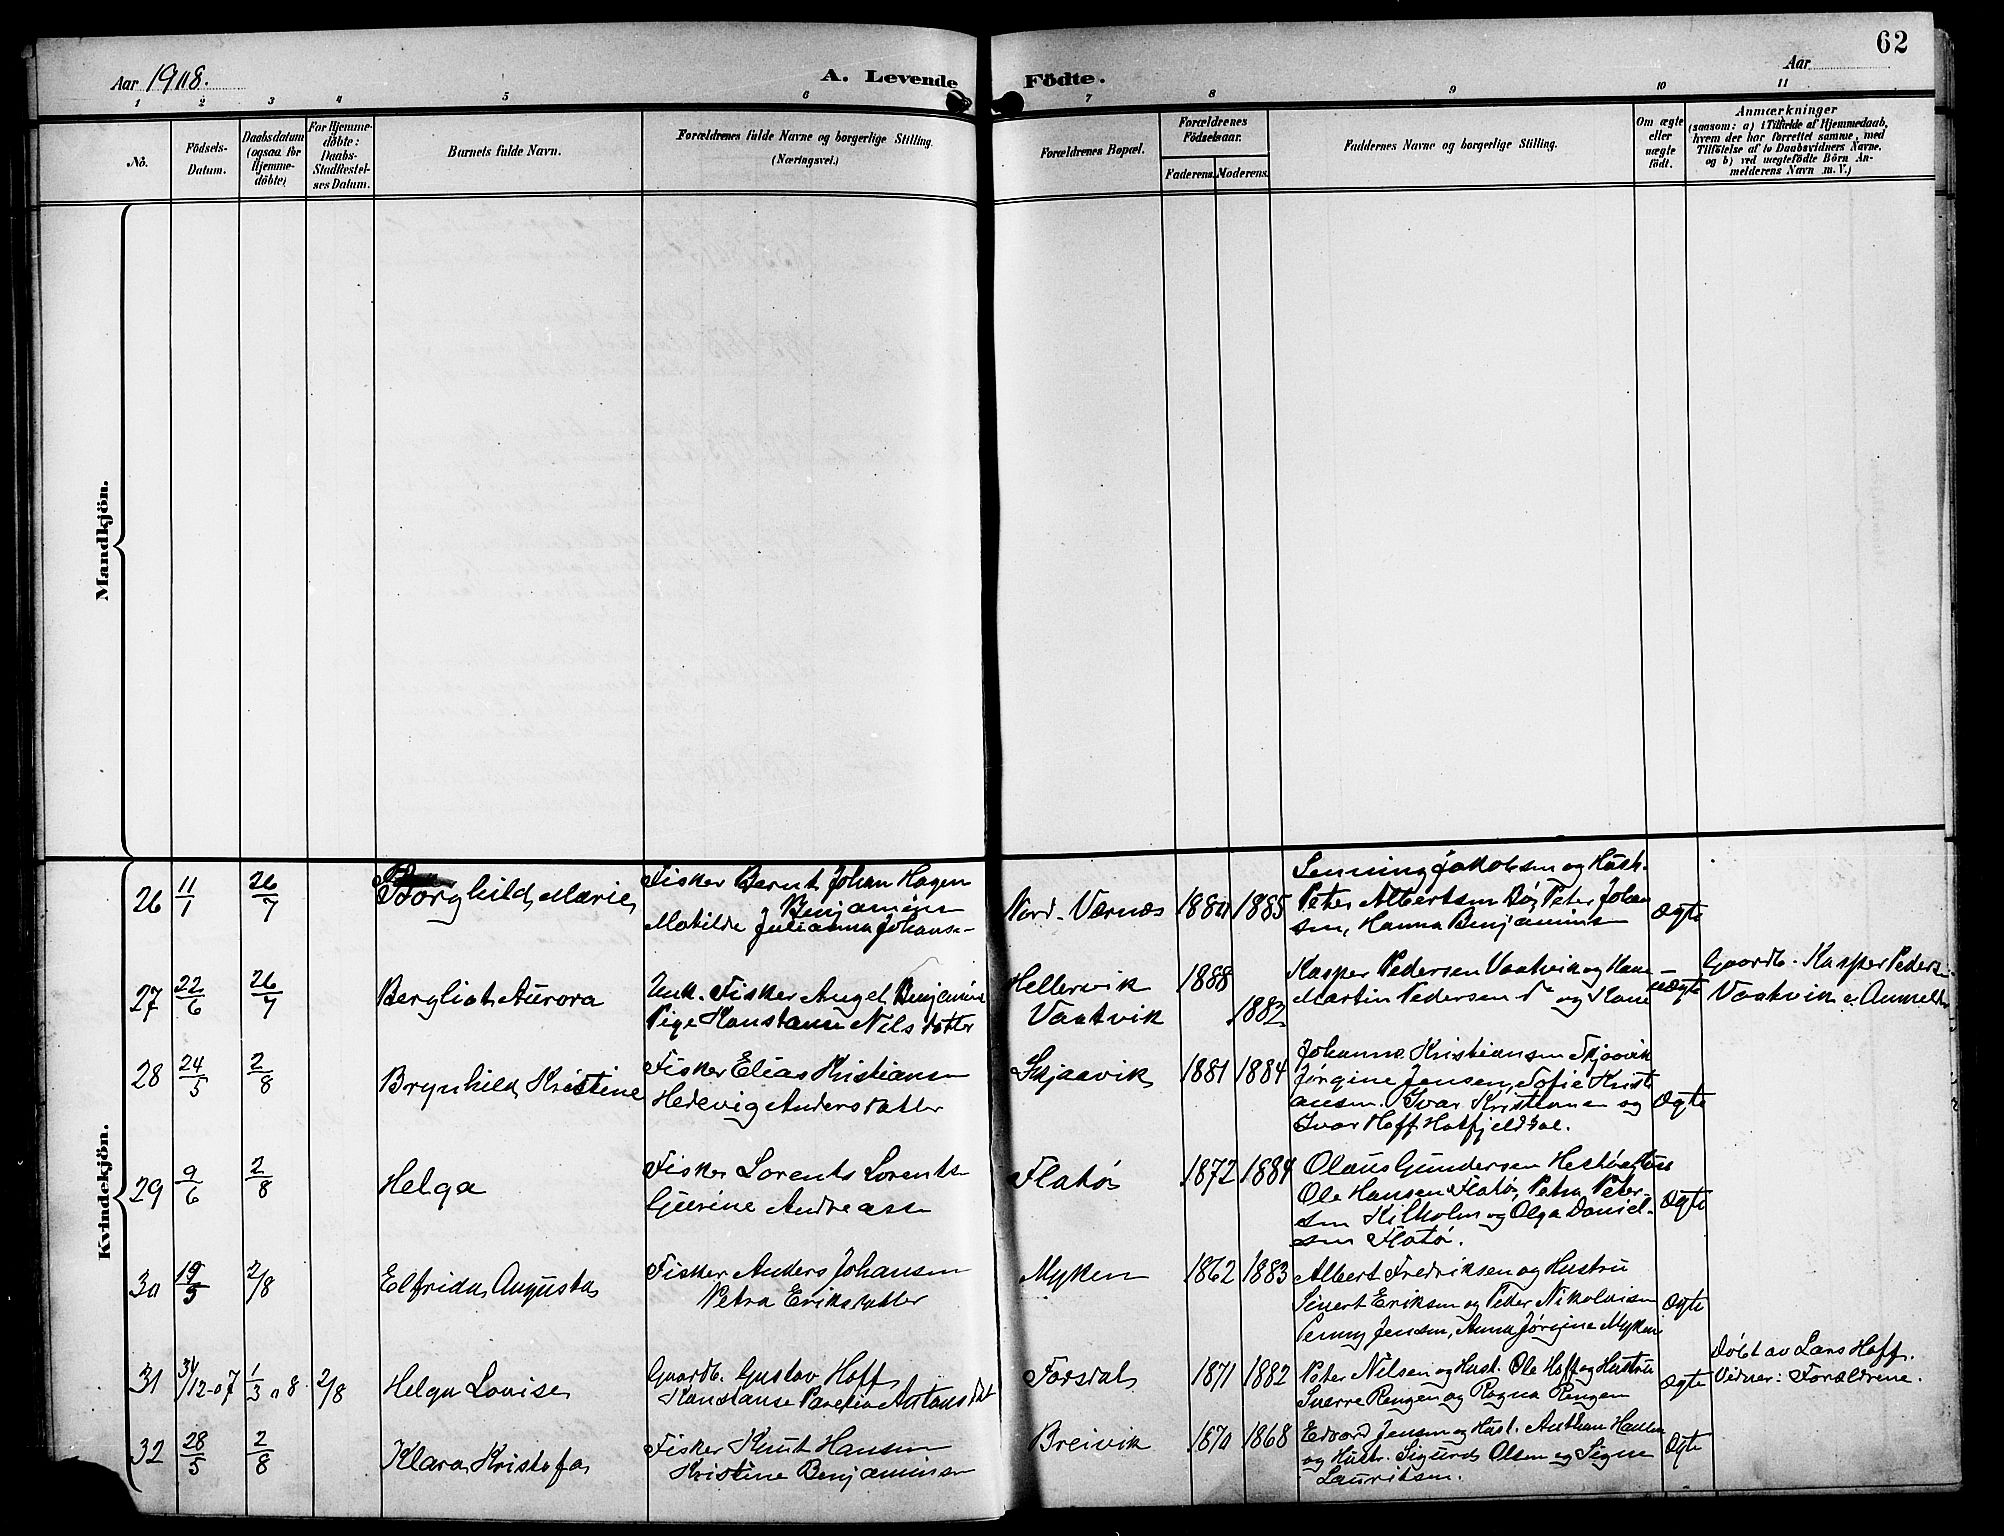 62
Aar 1908.
A. Levende Födte.
Aar
1 2 3 4 5 6 7 8 9 10 11
No.
Födsels-
Datum.
Daabsdatum
(ogsaa for
Hjemme-
döbte)
For Hjemme-
döbte:
Daabs-
Stadfæstel-
ses Datum.
Barnets fulde Navn.
Forældrenes fulde Navne og borgerlige Stilling.
(Næringsvei.)
Forældrenes Bopæl.
Forældrenes
Födselsaar.
Faderens. Moderens.
Faddernes Navne og borgerlige Stilling.
Om ægte
eller
uægte
födt.
Anmærkninger
(saasom: a) i Tilfælde af Hjemmedaab,
hvem der har forrettet samme, med
Tilföielse af to Daabsvidners Navne,
og b) ved uægtefödte Börn An-
melderens Navn m. V.)
Mandkjön.
Kvindekjön.
26 11/1 26/7 Borghild Marie
Fisker Bernt Johan Hagen
Benjaminsen
Matilde Julianna Johans-
Nord-Værnes 1880 1885
Henning Jakobsen og Hust.
Peter Albertsen Bø, Peter Johan
sen, Hanna Benjamins
Ægte
27 22/6 26/7 Bergliot Aurora
Unk. Fisker Angel Benjamins
Pige Konstanse Nilsdatter
Hellervik 1888
Vaatvik 1882
Kasper Pedersen Vaatvik og Kone
Martin Pedersen og Kone
uægte
Gaardb. Kasper Peders
Vaatvik e. Anmelder
28 24/5 2/8 Brynhild Kristine
Fisker Elias Kristiansen
Hedevig Andersdatter
Skjaavik 1881 1884
Johanna Kristiansen Skjaavik
Jørgine Jensen, Sofie Krist
ansen. Ivar Kristiansen og
Ivar Hoff Hatfjelddal.
Ægte
29 9/6 2/8 Helga
Fisker Lorents Lorents
Gjerine Andreassen
Flatø 1872 1884
Olaus Gundersen
Ole Hansen Flatø, Petra Peter-
sen Kilholm og Olga Daniel-
sen Flatø.
Ægte
30 19/5 2/8 Elfrida Augusta
Fisker Anders Johansen
Petra Eriksdatter
Myken 1862 1883
Albert Fredriksen og Hustru
Sivert Eriksen og Peder Nikolaisen
Penny Jensen, Anna Jørgine Myken
Ægte
31 31/12-07 1/3 08 2/8 Helga Louise
Gaardb. Gustav Hoff
Konstanse Antonsdat
Forsdal 1871 1882
Peter Nilsen og Hust. Ole Hoff og Hustru
Sverre Rengen og Ragna Rengen
Ægte
Døbt av Lars Hoff.
Vidner: Forældrene.
32 28/5 2/8 Klara Kristofa
Fisker Knut Hansen
Kristine Benjaminsen
Breivik 1870 1868
Edvard Jensen og Hust. Anthon Hansen
og Hustr. Sigurd Olsen og Signe
Lauritsen.
Ægte